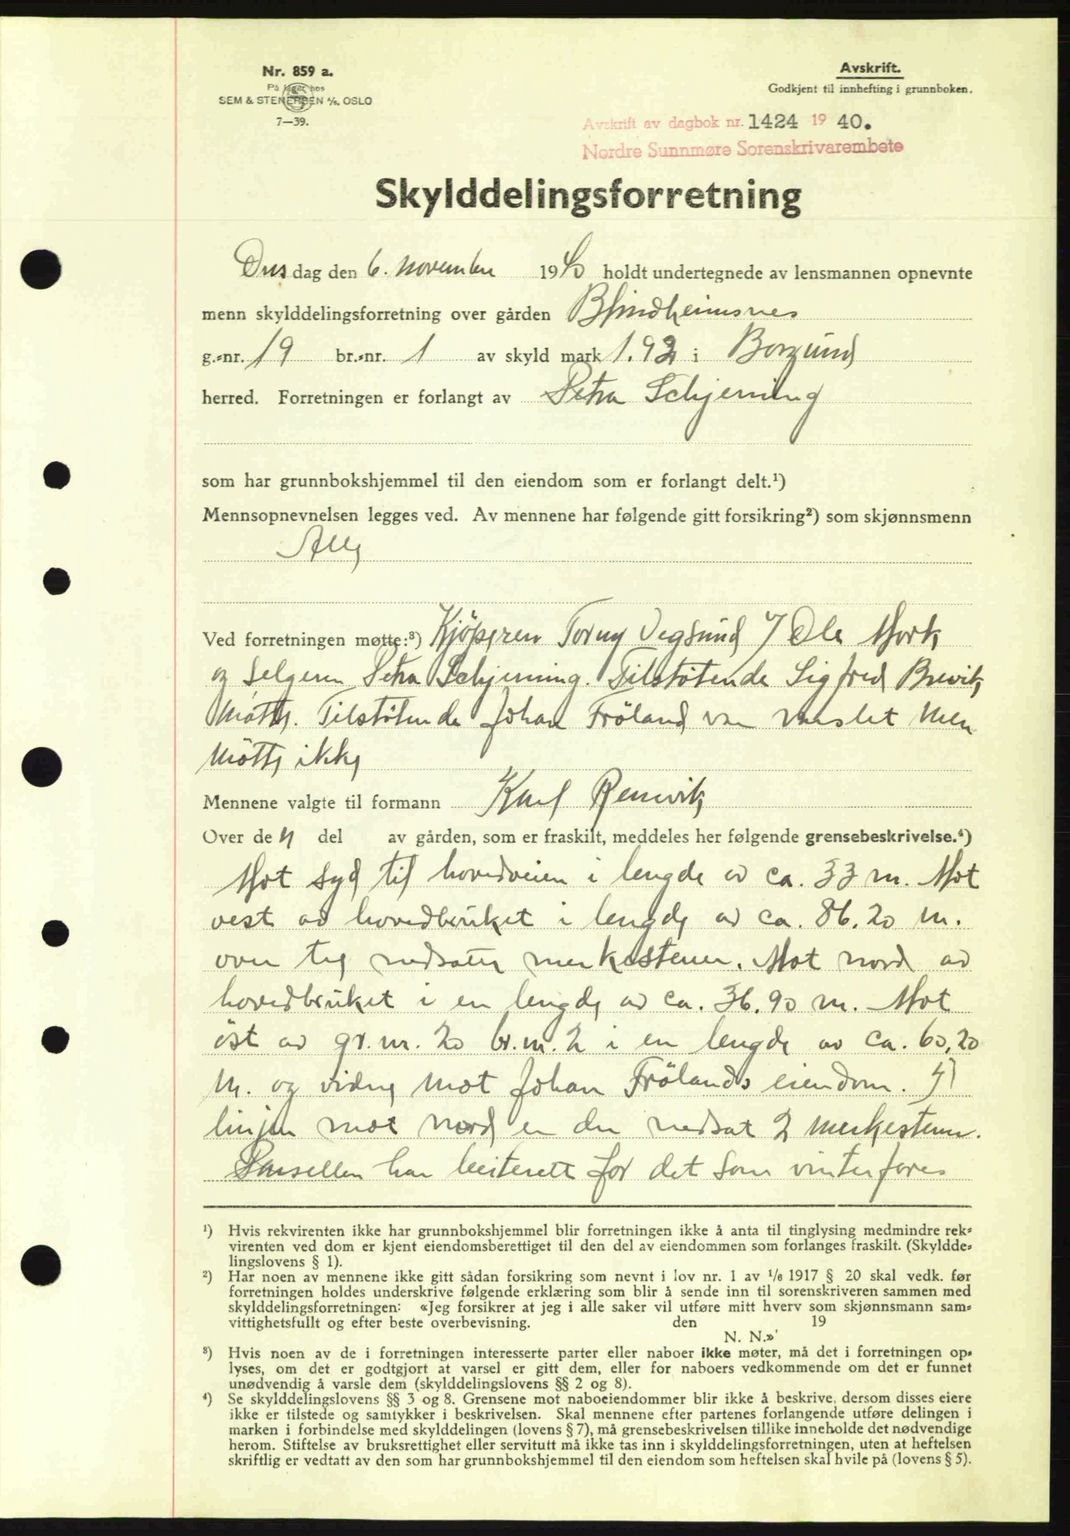 Nr. 859 a.
På lager hos
SEM & STENERSEN A/S. OSLO
7—39.
Avskrift.
Godkjent til innhefting i grunnboken.
Avskrift av dagbok nr. 1424 19 40.
Nordre Sunnmøre Sorenskrivarembete
Skylddelingsforretning
Ons dag den 6. november 1940 holdt undertegnede av lensmannen opnevnte
menn skylddelingsforretning over gården Blindheimsnes
g.-nr. 19 br.-nr. 1 av skyld mark 1.92 i Borgund
herred. Forretningen er forlangt av Petra Schjerning
som har grunnbokshjemmel til den eiendom som er forlangt delt.¹)
Mennsopnevnelsen legges ved. Av mennene har følgende gitt forsikring²) som skjønnsmenn
Alle
Ved forretningen møtte:³) Kjöperen Torny Vegsund v/ Ole Mork
og Selgeren Petra Schjerning. Tilstötende Sigfred Brevik
mötte. Tilstötende Johan Fröland var varslet men
mötte ikke
Mennene valgte til formann Karl Remvik
Over de n del av gården, som er fraskilt, meddeles her følgende grensebeskrivelse.⁴)
Mot syd til hovedveien i lengde av ca. 33 m. Mot
vest av hovedbruket i lengde av ca. 86.20 m.
over tre nedsatte merkestener. Mot nord av
hovedbruket i en lengde av ca. 36.90 m. Mot
öst av gr. nr. 20 br. nr. 2 i en lengde av ca. 60,20
m. og videre mot Johan Frölands eiendom. I
linjen mot nord er der nedsat 2 merkestener.
Parsellen har beiterett for det som vinterfores
¹) Hvis rekvirenten ikke har grunnbokshjemmel blir forretningen ikke å anta til tinglysing medmindre rek-
virenten ved dom er kjent eiendomsberettiget til den del av eiendommen som forlanges fraskilt. (Skyldde-
lingslovens § 1).
²) Har noen av mennene ikke gitt sådan forsikring som nevnt i lov nr. 1 av 1/6 1917 § 20 skal vedk. før
forretningen holdes underskrive følgende erklæring som blir å sende inn til sorenskriveren sammen med
skylddelingsforretningen: «Jeg forsikrer at jeg i alle saker vil utføre mitt hverv som skjønnsmann sam-
vittighetsfullt og efter beste overbevisning. den 19
N. N.»
³) Hvis noen av de i forretningen interesserte parter eller naboer ikke møter, må det i forretningen op-
lyses, om det er godtgjort at varsel er gitt dem, eller for naboers vedkommende om det er funnet
unødvendig å varsle dem (skylddelingslovens §§ 2 og 8).
⁴) Se skylddelingslovens §§ 3 og 8. Grensene mot naboeiendommer blir ikke å beskrive, dersom disses eiere
ikke er tilstede og samtykker i beskrivelsen. Skal mennene efter partenes forlangende utføre delingen i
marken i forbindelse med skylddelingen (lovens § 7), må grensebeskrivelsen tillike inneholde det nødvendige
herom. Stiftelse av bruksrettighet eller servitutt må ikke tas inn i skylddelingsforretningen, uten at heftelsen
skriftlig er vedtatt av den som har grunnbokshjemmel til den eiendom som heftelsen skal hvile på (lovens § 5).